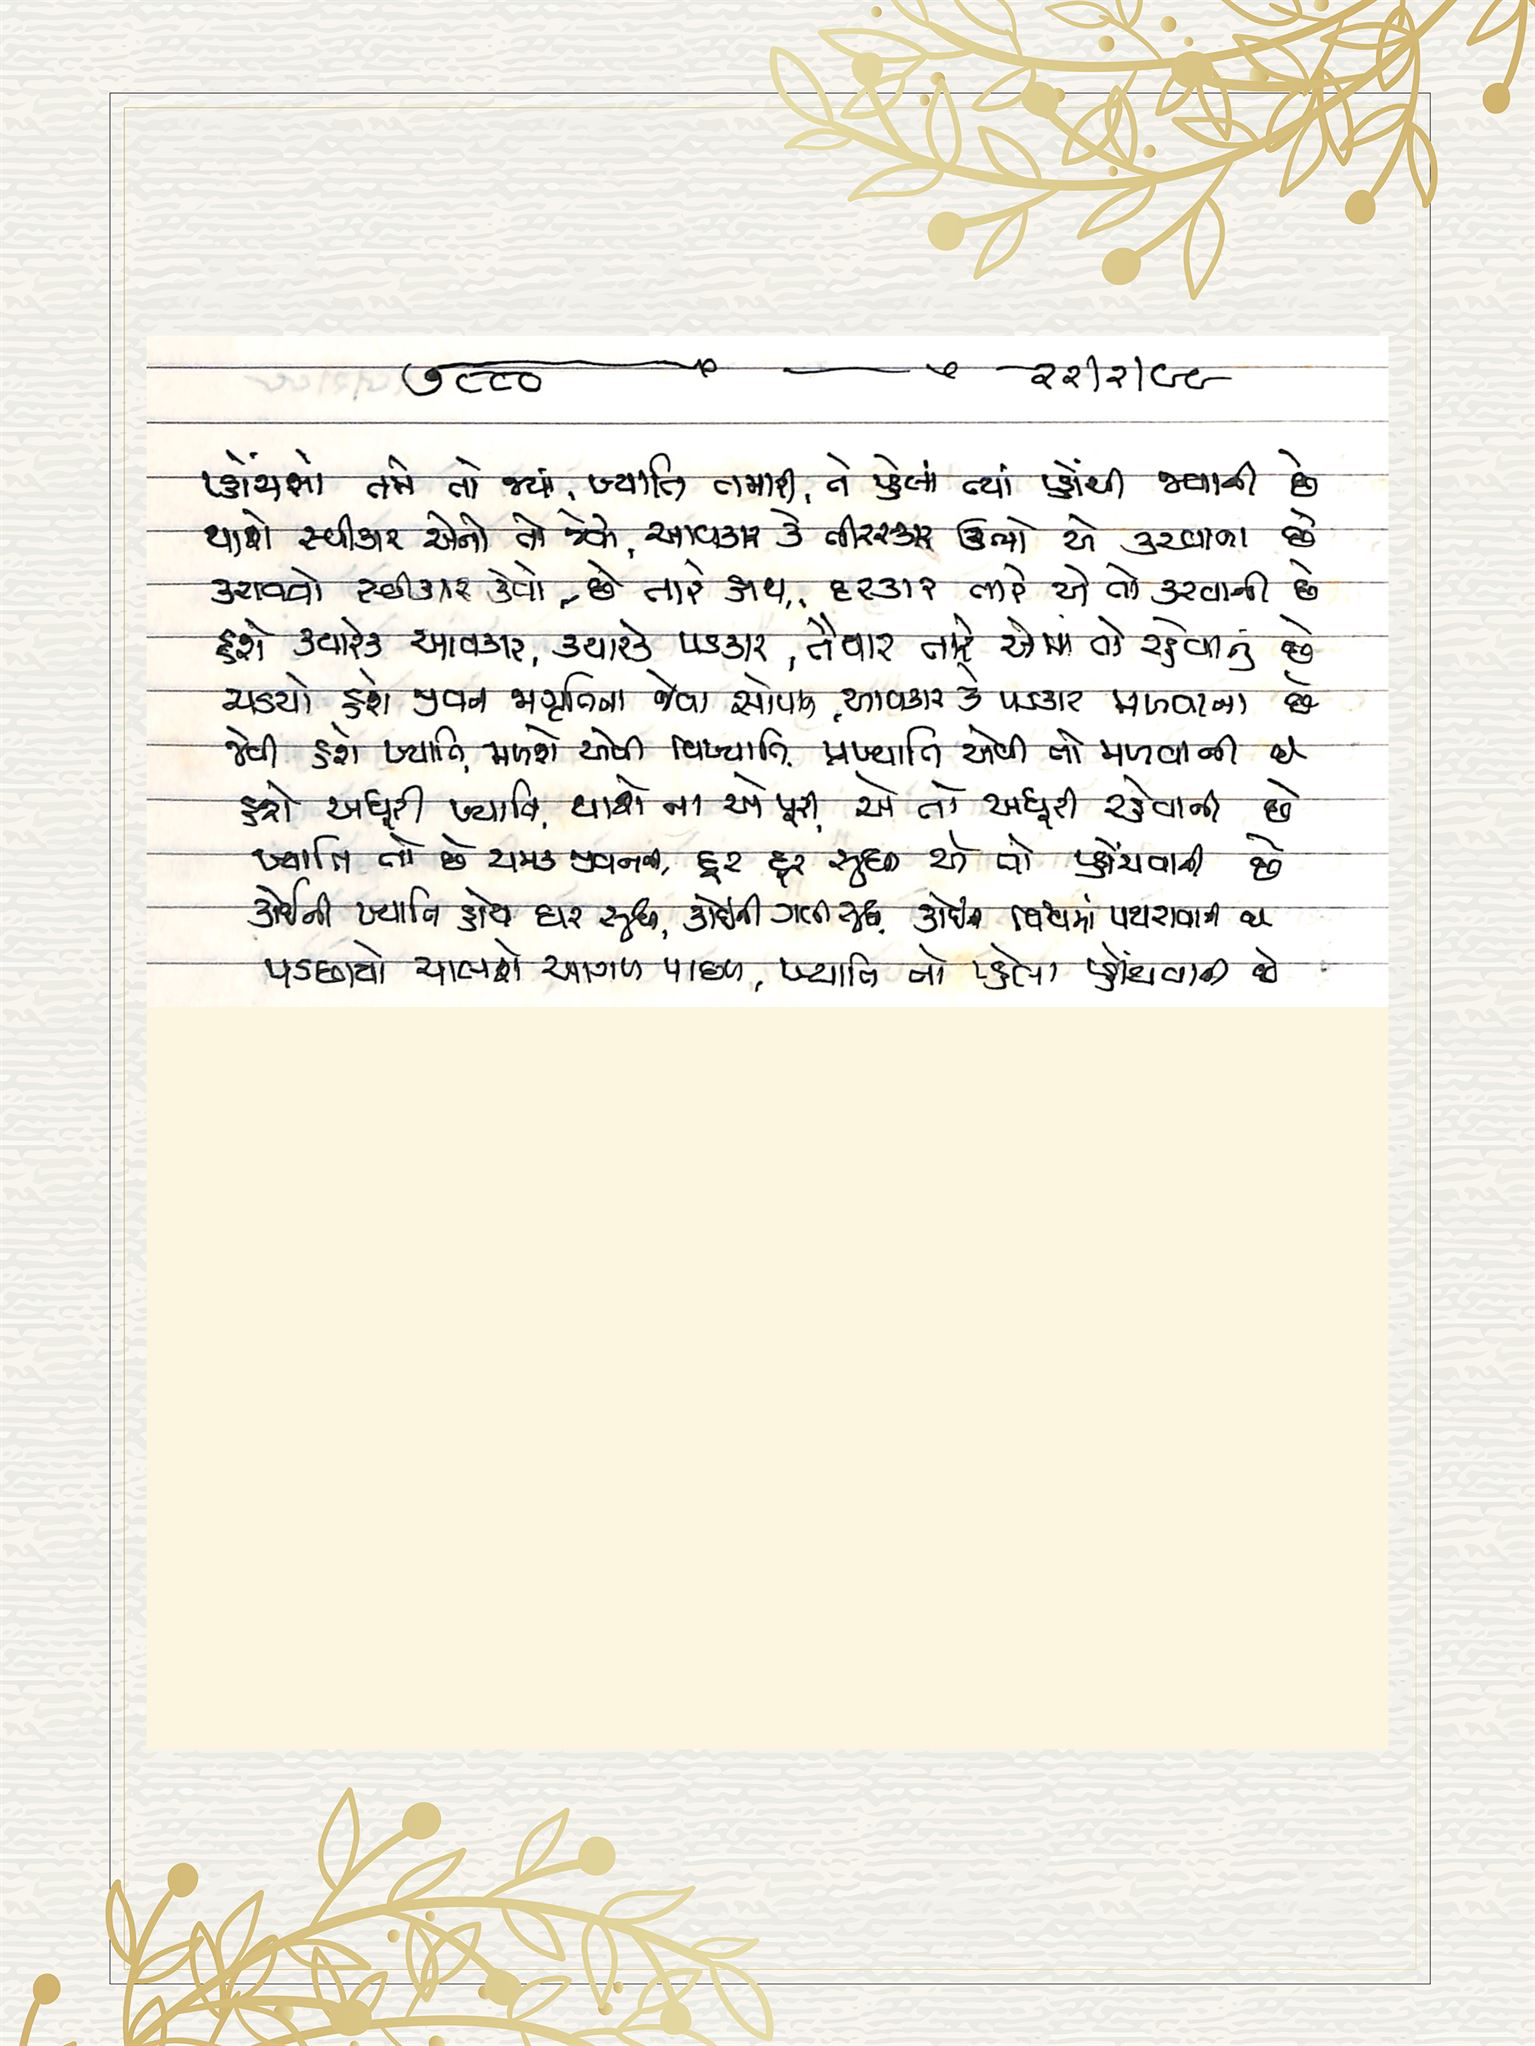 ૭૮૮૦ ૨૨/૨/૯૯
પ્હોંચશો તમે તો જ્યાં, ખ્યાતિ તમારી, ને પ્હેલાં ત્યાં પ્હોંચી જવાની છે
થાશે સ્વીકાર એનો તો કેવો, આવકાર કે તીરસ્કાર ઊભો એ કરવાના છે
કરાવવો સ્વીકાર કેવો, છે તારે હાથ, દરકાર તારે એ તો કરવાની છે
હશે ક્યારેક આવકાર, ક્યારેક પડકાર, તૈયાર તારે એમાં તો રહેવાનું છે
ચડયો હશે જીવન જાગૃતિના જેવા સોપાન, આવકાર કે પડકાર મળવાના છે
જેવી હશે ખ્યાતિ, મળશે એવી વિખ્યાતિ, પ્રખ્યાતિ એવી તો મળવાની છે
હશે અધૂરી ખ્યાતિ, થાશે ના એ પૂરી, એ તો અધૂરી રહેવાની છે
ખ્યાતિ તો છે ચમક જીવનની, દૂર દૂર સુધી એ તો પ્હોંચવાની છે
કોઈની ખ્યાતિ હોય ઘર સુધી, કોઈની ગલી સુધી, કોઈની વિશ્વમાં પથરાવાની છે
પડછાયો ચાલશે આગળ પાછળ, ખ્યાતિ તો પ્હેલા પ્હોંચવાની છે